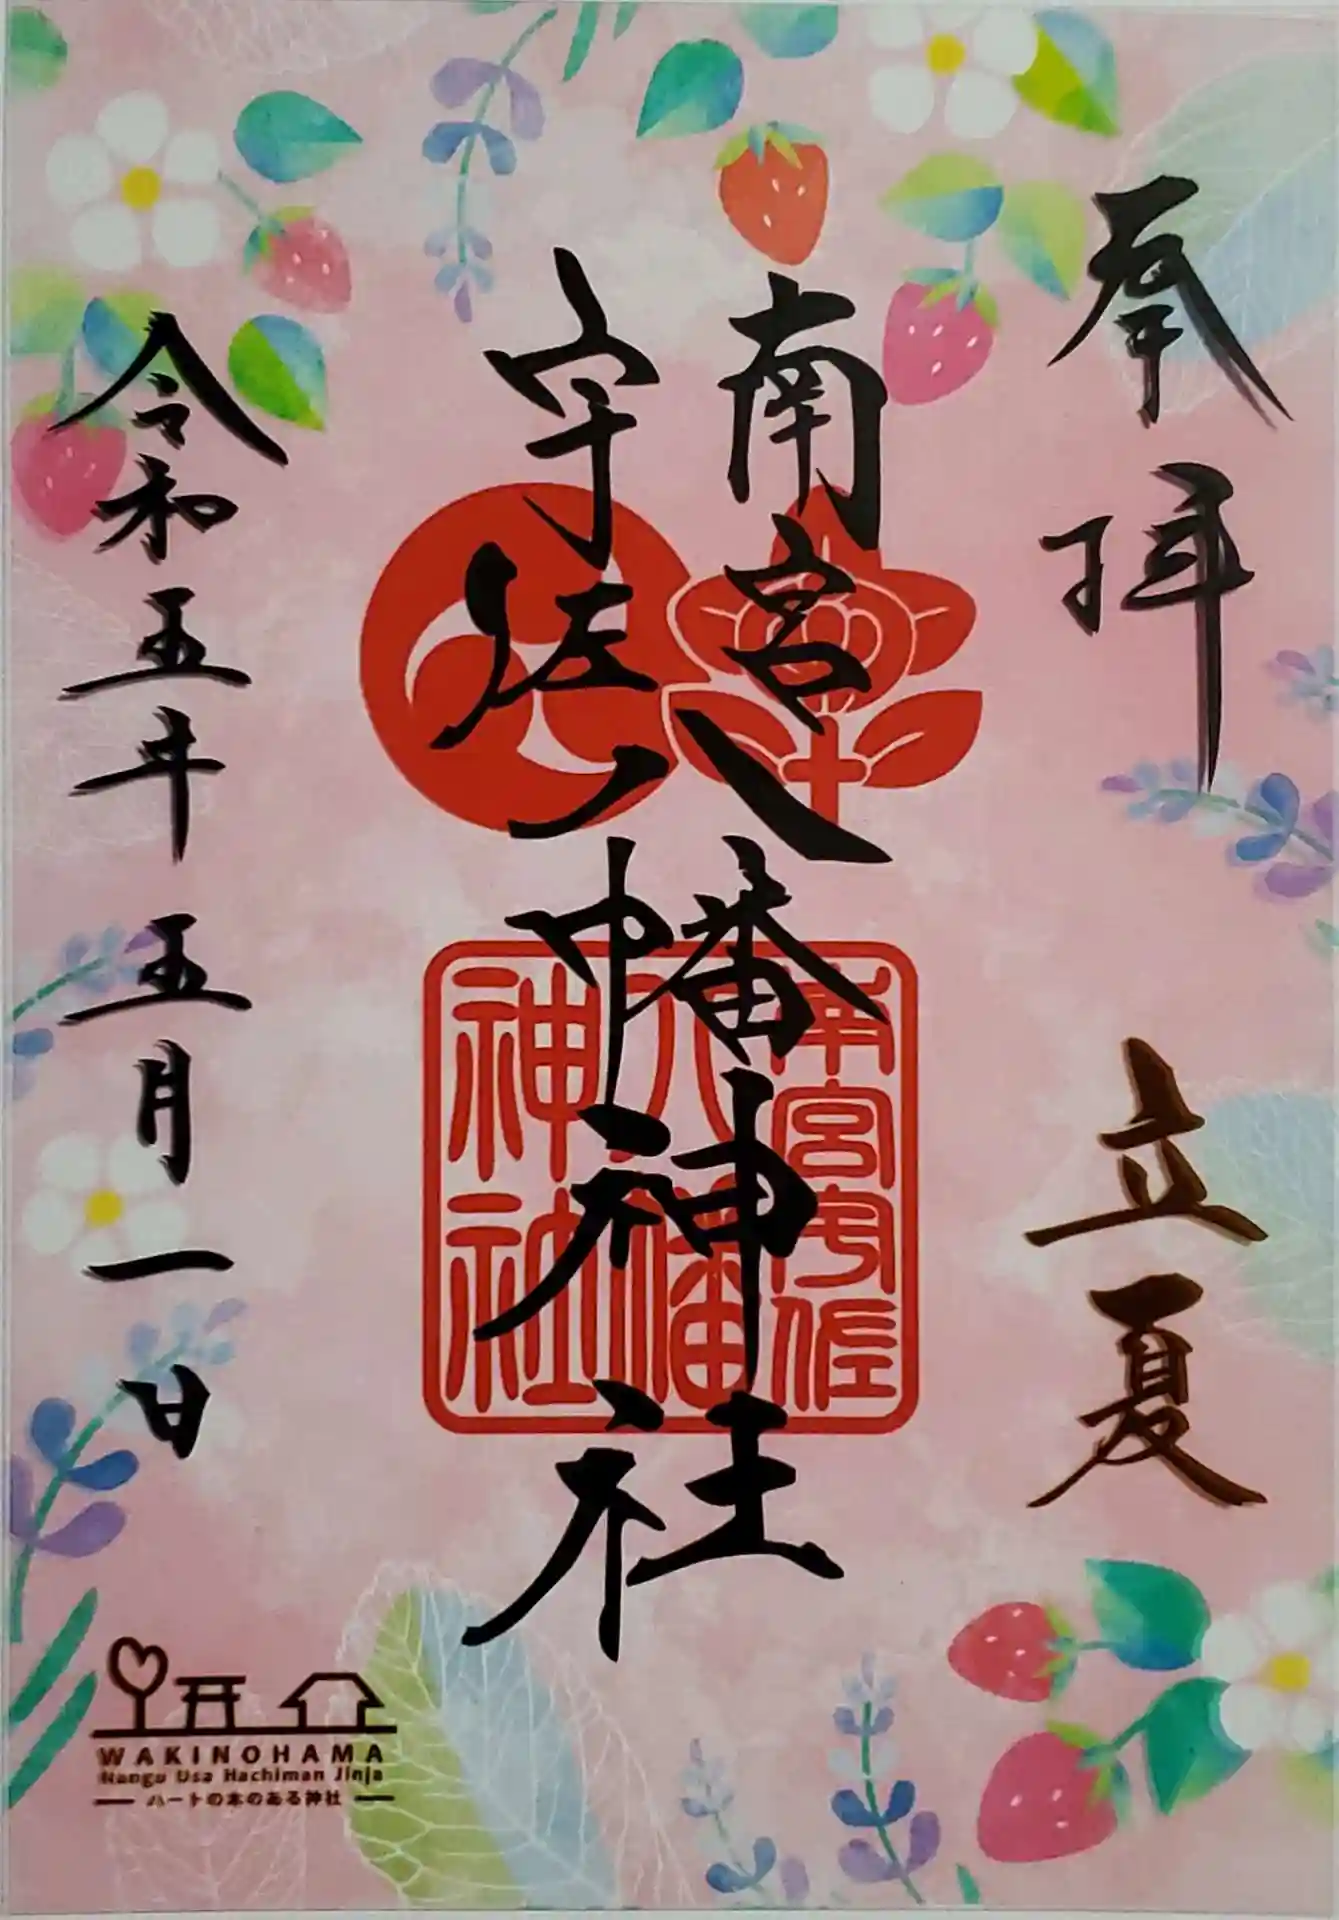 奉拝
立夏
南宮
宇佐
八幡神社
南宮宇佐
八幡
神社
令和五年五月一日
WAKINOHAMA
Nangu Usa Hachiman Jinja
ハートの木のある神社